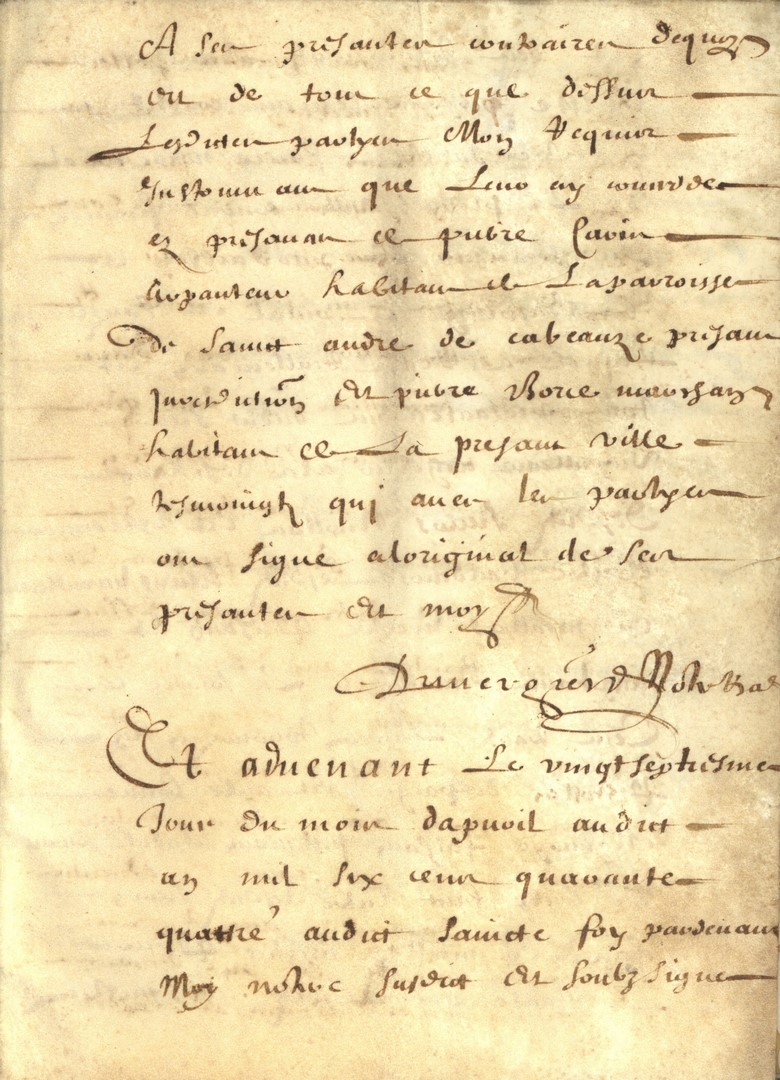 A ses presantes contraires dequoy
Et de tout ce que dessus
Lesdittes partyes Mon Requis
Instrumant que Leur ay concede
ez presances de pierre
Arpanteur habitant de La parroisse
De sainct andre de cabeauze presant
Jurisdiction Et pierre Borie marchan
habitant de La presant ville
tesmoingtz qui avec les partyes
ont signe aloriginal de ses
presantes Et moy
Duvergier Notre Royal
Et advenant Le vingt septiesme
Jour du mois dapvril audict
an mil six cens quarante
quattre audict saincte foy pardevant
Moy notere susdict Et soubzsigne